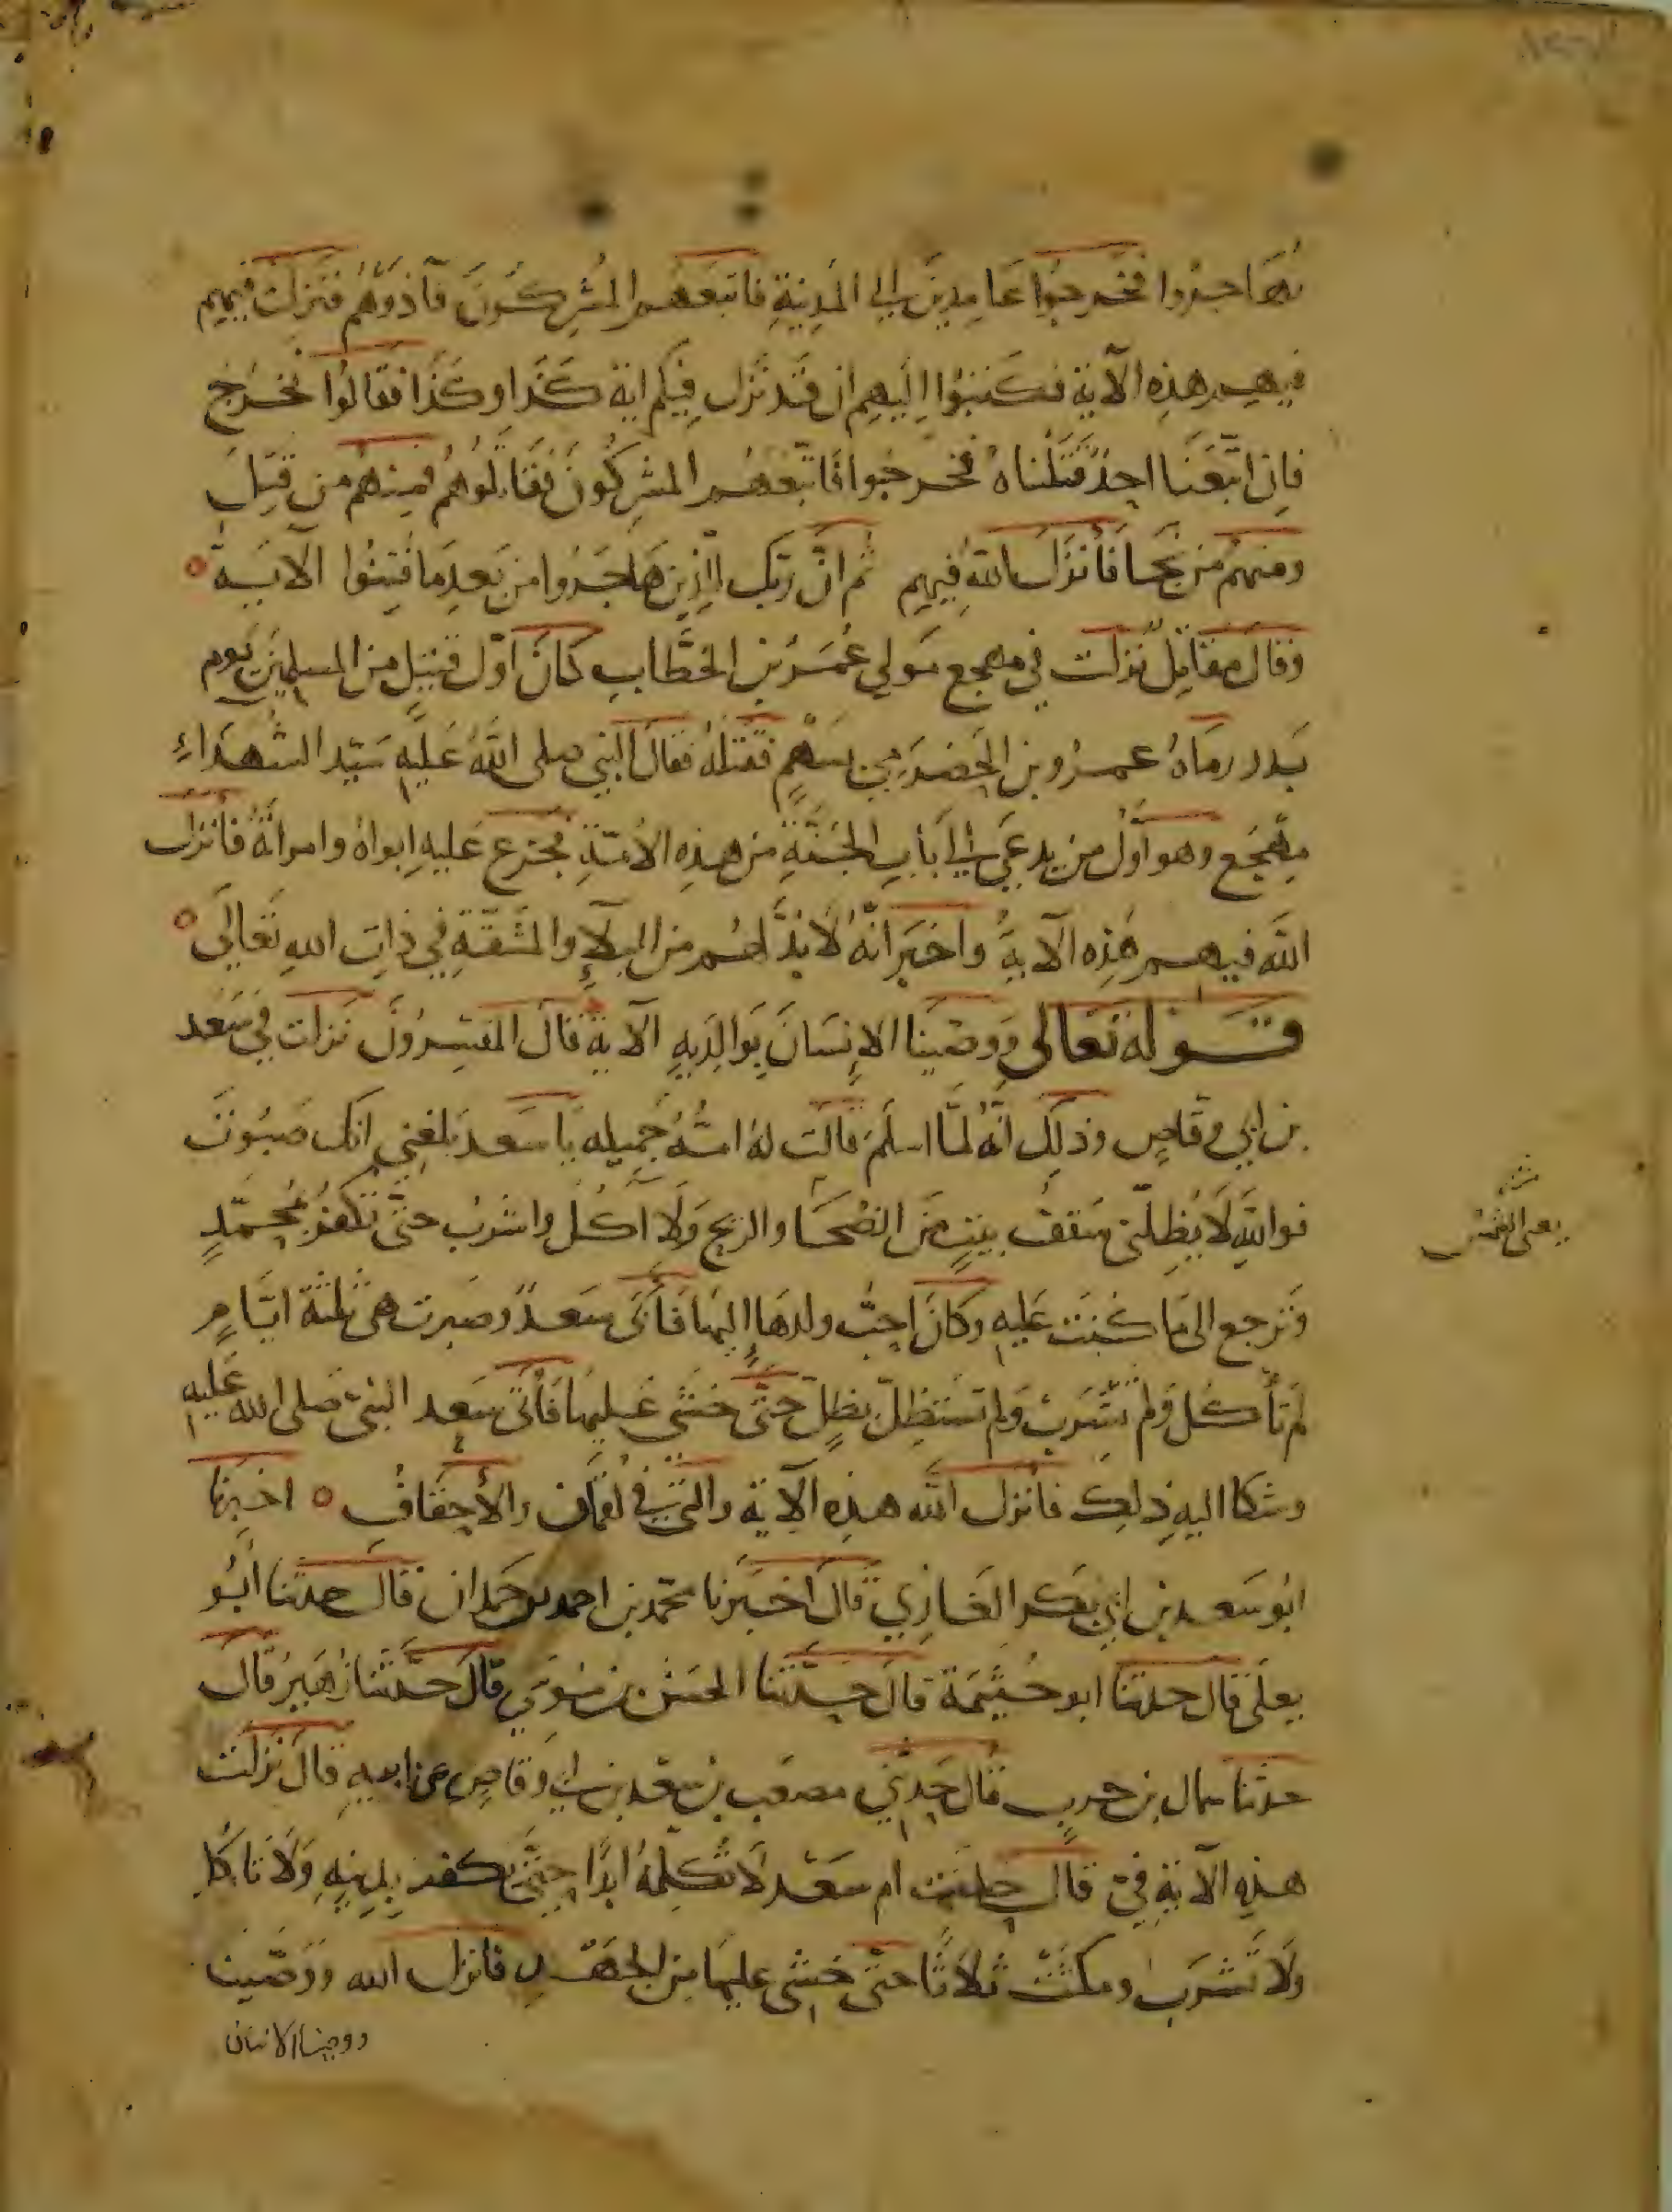 تهاجروا فخرجوا عامدين الى المدينةِ فاتبعهم المشركونَ فآذوهُم فنزلت فيهم
فيهم هذه الآية فكتبوا اليهم ان قد نزل فيكم اية كذا وكذا فقالوا نخرُج
فاِن اتبعَنا احدٌ قتلناهُ فخرجوا فاتبعهم المشركونَ فقاتلوهم فمنهم من قتِل
ومنهم من نجا فأنزل اللهُ فيهم ثم ان ربك للذين هاجروا من بعدِ ما فتِنُوا الآية
وقال مقاتل نزلت في مهجع مولي عُمَر بن الخطابِ كان اول قتيلٍ من المسلمين يوم
بدر رماهُ عمرو بن الحضرمي بسهمٍ فقتلهُ فقال النبي صلى اللهُ عليهِ سيّد الشهداءِ
مِهجَع وهو اوّل من يدعى الى بابِ الجنةِ من هذه الامةِ فجزع عليهِ ابواهُ وامراتهُ فانزل
الله فيهم هذِه الآيةُ واخبر انّهُ لا بُدّ لهم من البلآءِ والمشقّةِ في ذاتِ اللهِ تعالى
قوله تعالى ووصّينا الاِنسَانَ بوالِدَيهِ الآية قال المفسِرُونَ نزلت في سَعد
بن ابي وقاصٍ وذلِك انّه لمّا اسلَمَ قالت لهُ امّهُ جَمِيله يا سَعد بلغني انك صَبَوتَ
فواللهِ لا يُظِلّني سَقفُ بيتٍ من الضحّا والريح ولا اكُل واشربُ حتّى تكفُر بمُحمّدٍ
وترجع الى ما كنت عليهِ وكان احبّ ولدها اليها فأبى سعدٌ وصبرت هي ثلثة ايّامٍ
لم تأكُل ولم تشرَب ولم تستظِلّ بظِلٍ حتّى خشي عليها فأتى سَعد النبي صلى الله عليه
وشكا اليهِ ذلِك فانزل الله هذِه الآية والتي في لقمان والاَحقافِ اخبرنا
ابُو سَعد بن ابي بكر الغازي قال اخبرنا محمد بن احمد بن حمدان قال حدثنا ابُو
يعلَى قال حدثنا ابو خيثمة قال حدّثنا الحسن بن موسي قال حدّثنا زُهيرُ قال
حدثنا سماك بن حربٍ قال حدثني مصعب بن سعد بن ابي وقاصٍ عن ابيهِ قال نزلت
هذِه الآيةِ فيّ قال حلفت ام سَعد لا تكلِمهُ ابدًا حتّى يكفر بدِينِهِ ولا تاكل
ولا تشرَب ومكثت ثلاثًا حتّى خشي عليها من الجَهد فانزل الله ووصّينا
ووصينا الانسان
يعنى الشمس